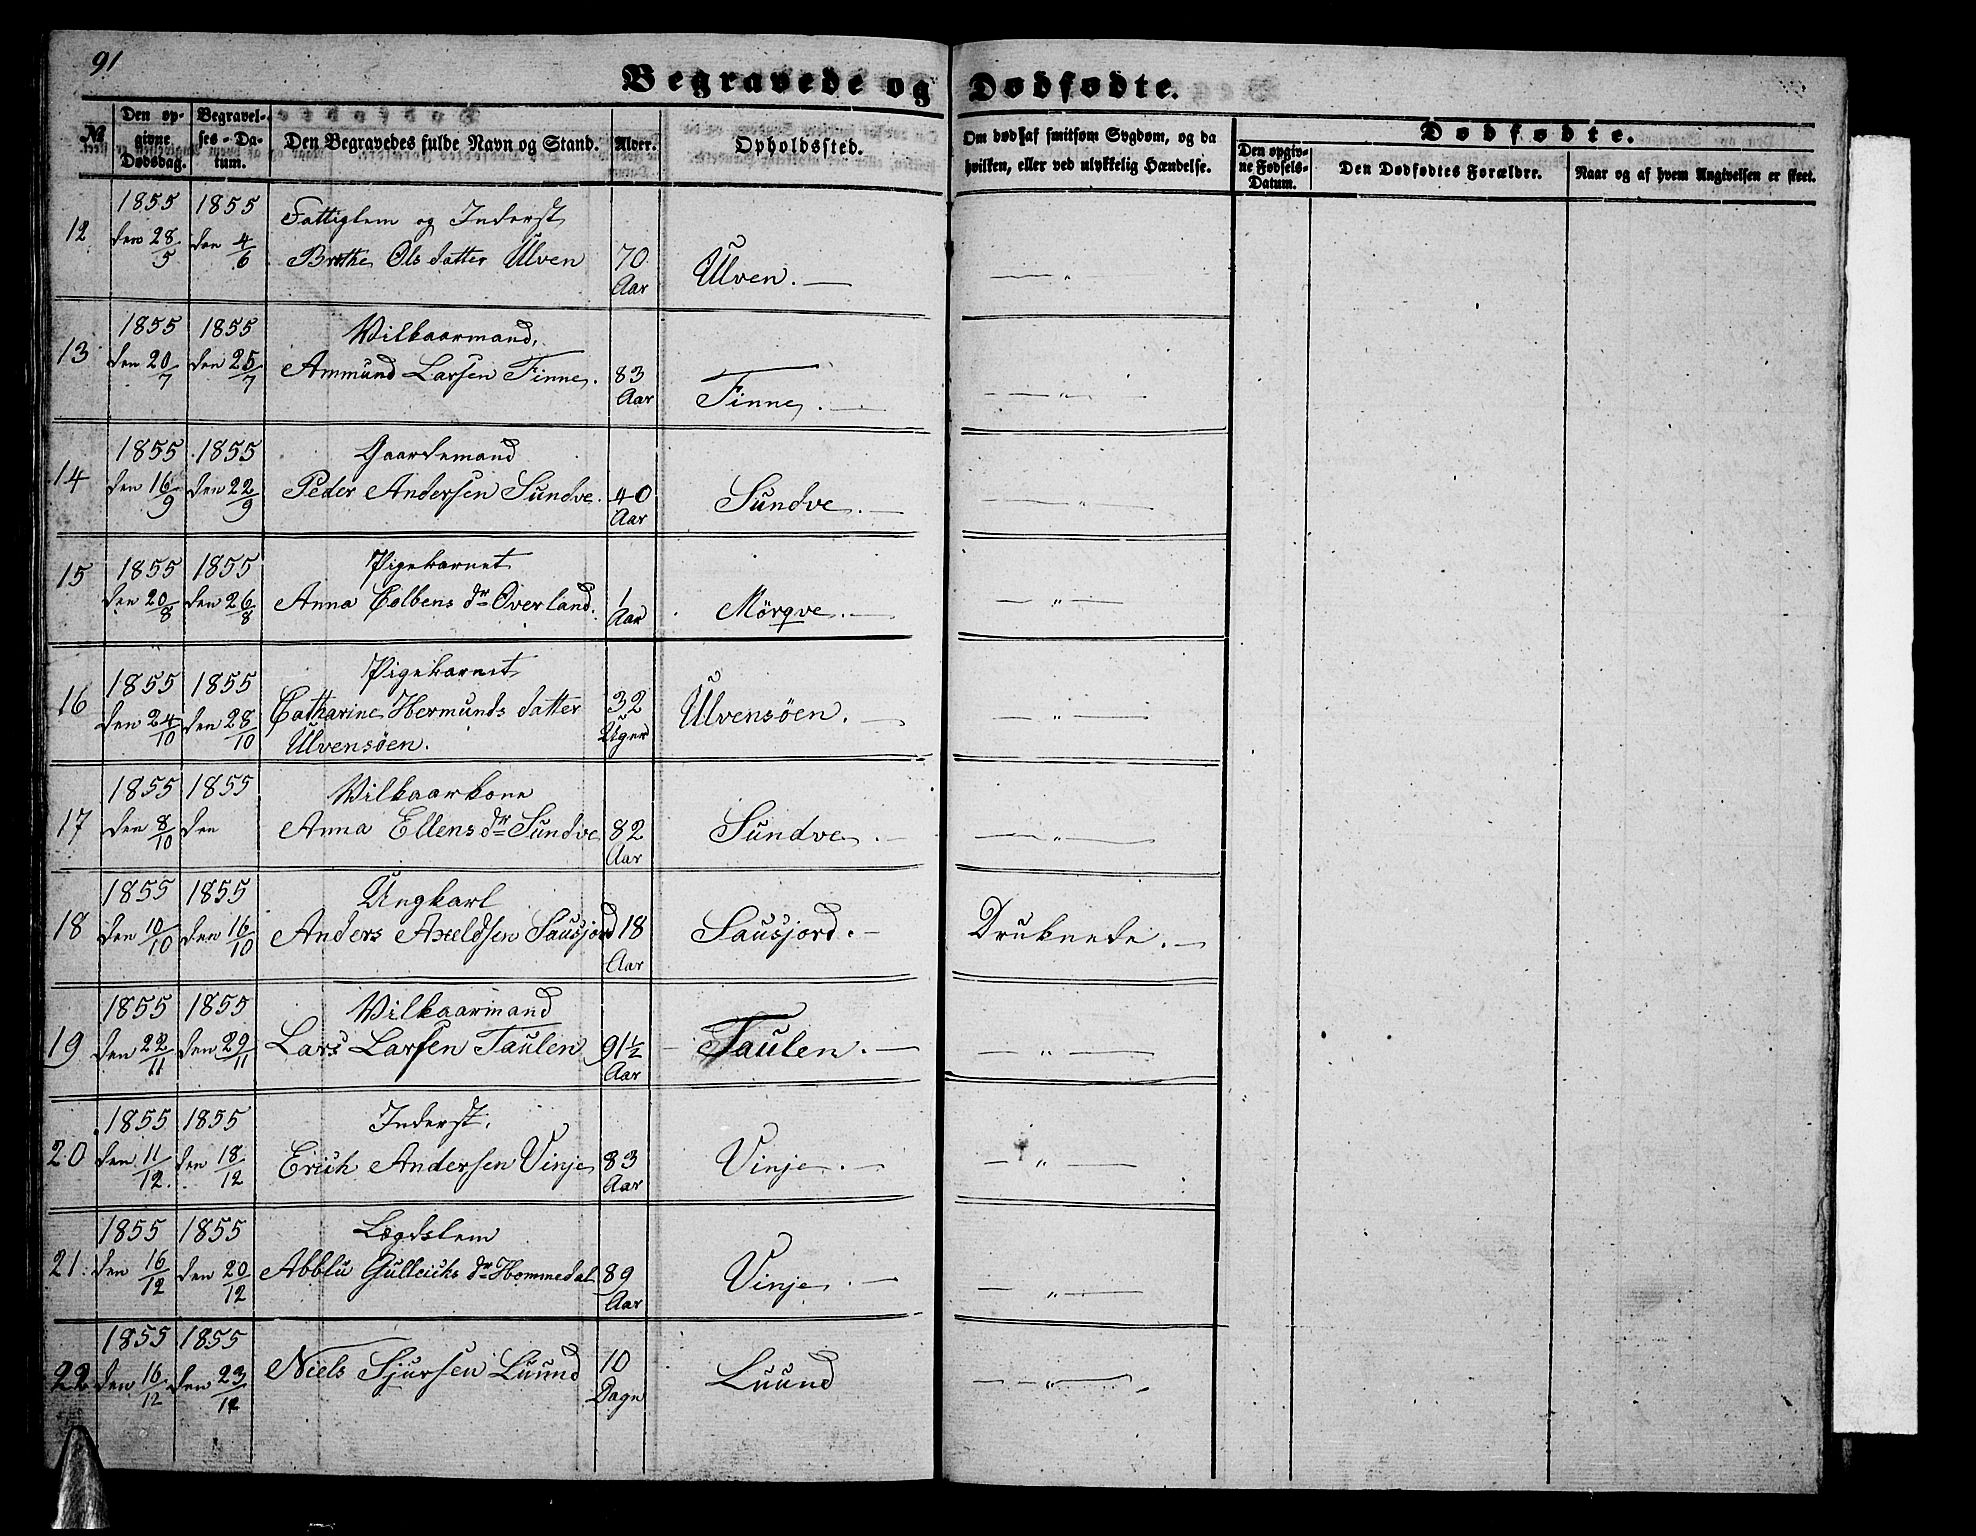 91
Begravede og Dødfødte.
№ Den opgivne Dødsdag. Begravelses-Datum. Den Begravedes fulde Navn og Stand. Alder. Opholdssted. Om død af smitsom Sygdom, og da hvilken, eller ved ulykkelig Hændelse. Dødfødte. Den opgivne Fødsels-Datum. Den Dødfødtes Forældre. Naar og af hvem Angivelsen er skeet.
1855 1855 Fattiglem og Inderst
12 den 28/5 den 4/6 Brithe Olsdatter Ulven 70 Aar Ulven. — — „
1855 1855 Vilkaarmand,
13 den 20/7 den 25/7 Ammund Larsen Finne. 83 Aar Finne. — — „ —
1855 1855 Gaardemand
14 den 16/9 den 22/9 Peder Andersen Sundve. 40 Aar Sundve. — — „ —
1855 1855 Pigebarnet
15 den 20/8 den 26/8 Anna Colbens dr Øverland. 1 Aar Mørqve. — — „ —
1855 1855 Pigebarnet
16 den 24/10 den 28/10 Catharine Hermunds datter 32 Uger Ulvensöen. — — „ —
Ulvensöen.
1855 1855 Vilkaarkone
17 den 8/10 den Anna Ellens dr Sundve 82 Aar Sundve. — — „ —
1855 1855 Ungkarl
18 den 10/10 den 16/10 Anders Axeldsen Sausjord 18 Aar Sausjord. — Druknede. —
1855 1855 Vilkaarmand
19 den 22/11 den 29/11 Lars Larsen Taulen 91 ½ Aar Taulen. — — „ —
1855 1855 Inderst.
20 den 11/12 den 18/12 Erich Andersen Vinje 83 Aar Vinje. — — „ —
1855 1855 Lægdslem
21 den 16/12 den 20/12 Abblu Gulleicks dr Hommedal 89 Aar Vinje. — — „ —
1855 1855
22 den 16/12 den 23/12 Niels Sjursen Luund 10 Dage Luund — „ —